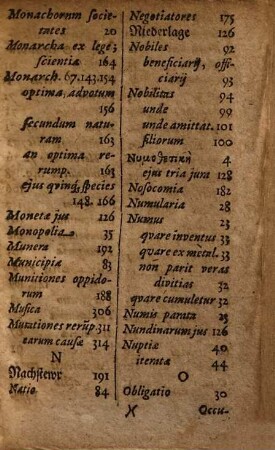 Monachorum socie-
tates 20
Monarcha ex lege;
scientia 164
Monarch. 67.143.154
optima, advotum
156
secundum natu-
ram 163
an optima re-
rump. 163
ejus qvinq; species
148. 166
Monetæ jus 126
Monopolia 35
Munera 192
Municipia 83
Munitiones oppido-
rum 188
Musica 306
Mutationes rerūp. 311
earum causæ 314
N
Nachstewr 191
Natio 84
Negotiatores 175
Niederlage 126
Nobiles 92
beneficiarij, offi-
ciarij 93
Nobilitas 94
unde 99
unde amittat. 101
filiorum 100
Νομοθετικὴ 4
ejus tria jura 128
Nosocomia 182
Numularia 28
Numus 23
qvare inventus 33
qvare ex metal. 33
non parit veras
divitias 32
qvare cumuletur 32
Numis parata 25
Nundinarum jus 126
Nuptiæ 40
iteratæ 44
O
Obligatio 30
X Occu-